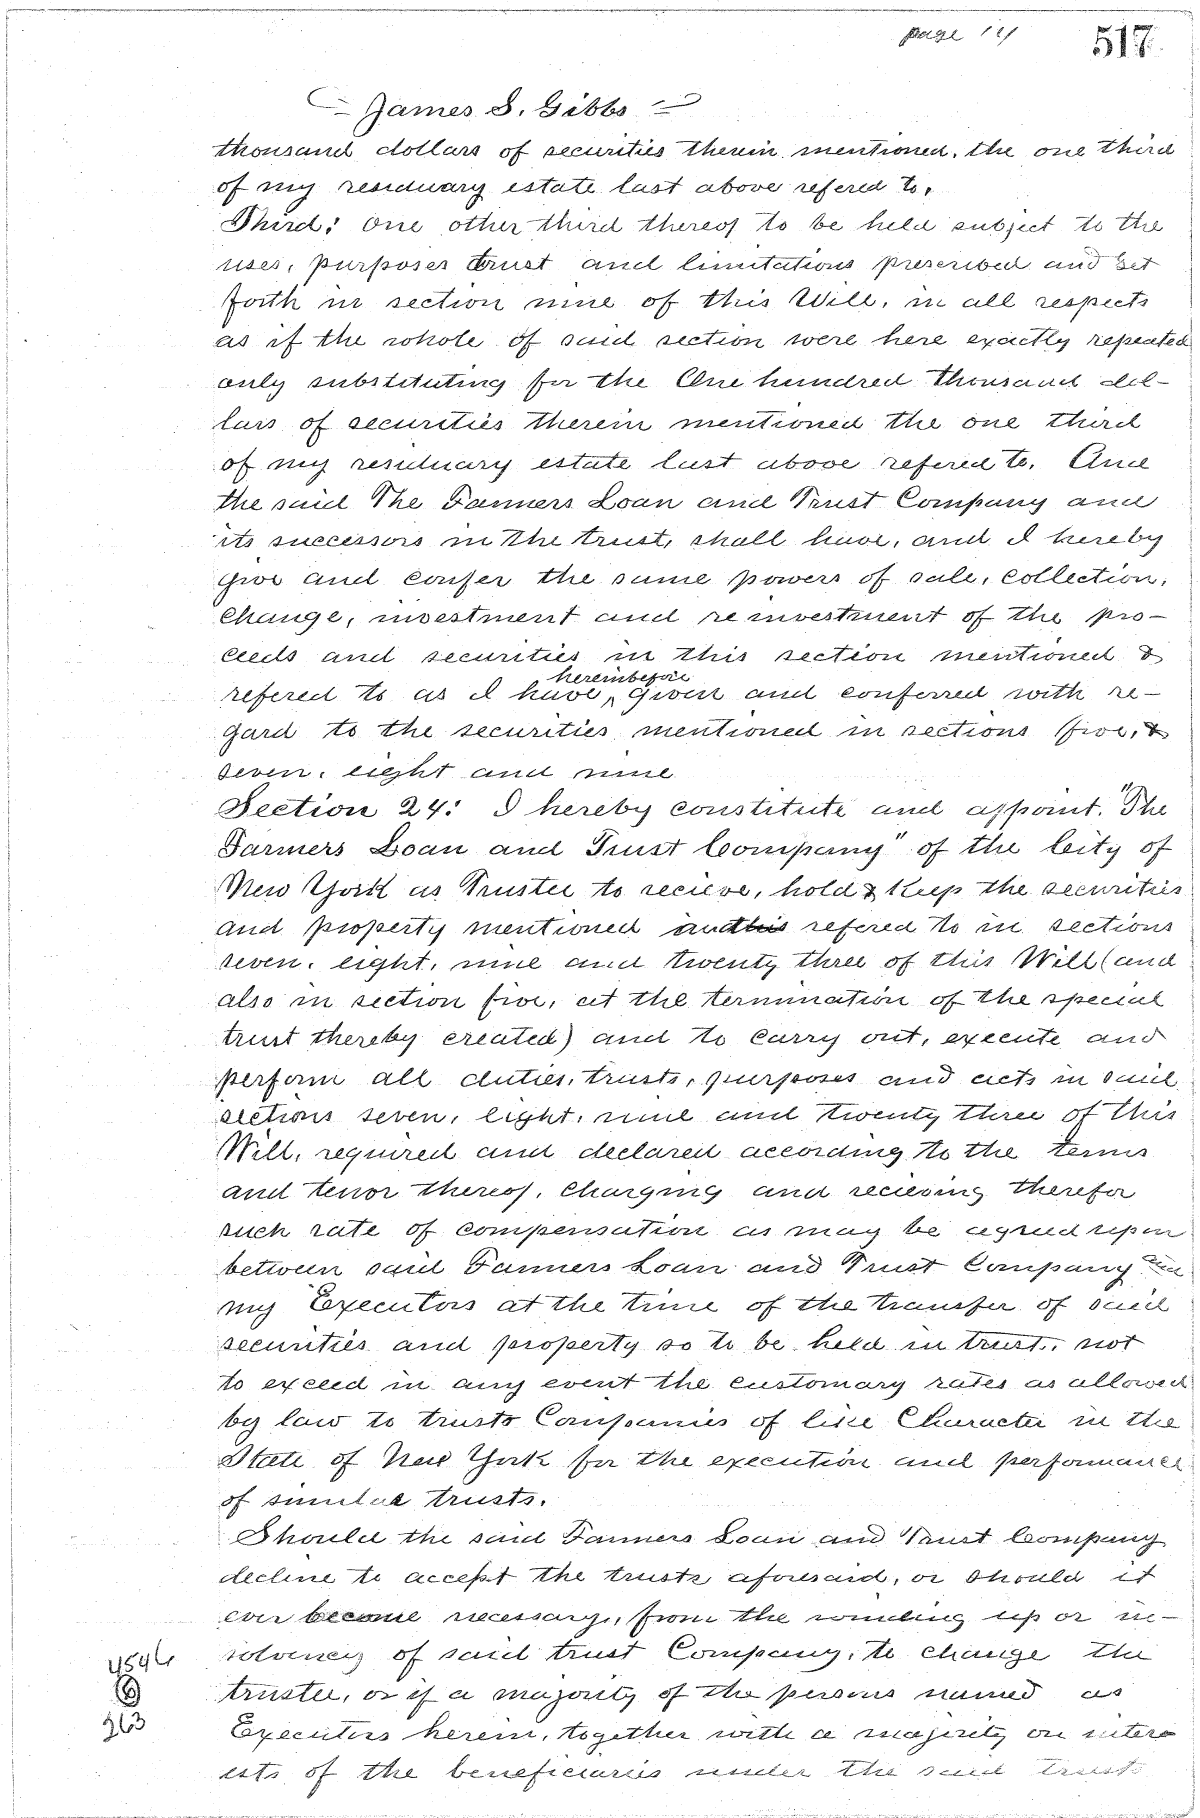 page 14
517
James S. Gibbs
thousand dollars of securities therein mentioned, the one third
of my residuary estate last above refered to.
Third: One other third thereof to be held subject to the
uses, purposes trust and limitations prescribed and set
forth in section nine of this Will, in all respects
as if the whole of said section were here exactly repeated
only substituting for the One hundred thousand dol-
lars of securities therein mentioned the one third
of my residuary estate last above refered to. And
the said The Farmers Loan and Trust Company and
its successors in the trust, shall have, and I hereby
give and confer the same powers of sale, collection,
change, investment and reinvestment of the pro-
ceeds and securities in this section mentioned &
hereinbefore
refered to as I have, given and conferred with re-
gard to the securities mentioned in sections five, &
seven, eight and nine
Section 24: I hereby constitute and appoint. "The
Farmers Loan and Trust Company" of the City of
New York as Trustee to recieve, hold & Keep the securities
and property mentioned refered to in sections
seven, eight, nine and twenty three of this Will (and
also in section five, at the termination of the special
trust thereby created) and to carry out, execute and
perform all duties, trusts, purposes and acts in said
sections seven, eight, nine and twenty three of this
Will, required and declared according to the terms
and tenor thereof, charging and recieving therefor
such rate of compensation as may be agreed upon
between said Farmers Loan and Trust Company and
my Executors at the time of the transfer of said
securities and property so to be held in trust, not
to exceed in any event the customary rates as allowed
by law to trusts Companies of like Character in the
State of New York for the execution and performance
of similar trusts.
Should the said Farmers Loan and Trust Company
decline to accept the trusts aforesaid, or should it
ever become necessary, from the winding up or in-
solvency of said trust Company, to change the
trustee, or if a majority of the persons named as
Executors herein, together with a majority on inter-
ests of the beneficiaries under the said trusts
4546
6
263